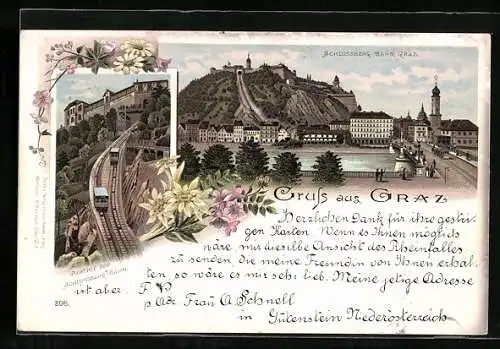 SCHLOSSBERG BAHN, GRAZ.
Gruss aus GRAZ
Herzlichen Dank für ihre gestri-
gen Karten. Wenn es Ihnen möglich
wäre, mir dieselbe Ansicht des Rheinfalles
zu senden die meine Freundin von Ihnen erhal-
ten, so wäre es mir sehr lieb. Meine jetzige Adresse
ist aber F. P
p Adr Frau A Schnell
in Gutenstein Niederösterreich
PARTHIE DER
SCHLOSSBERG BAHN.
208.